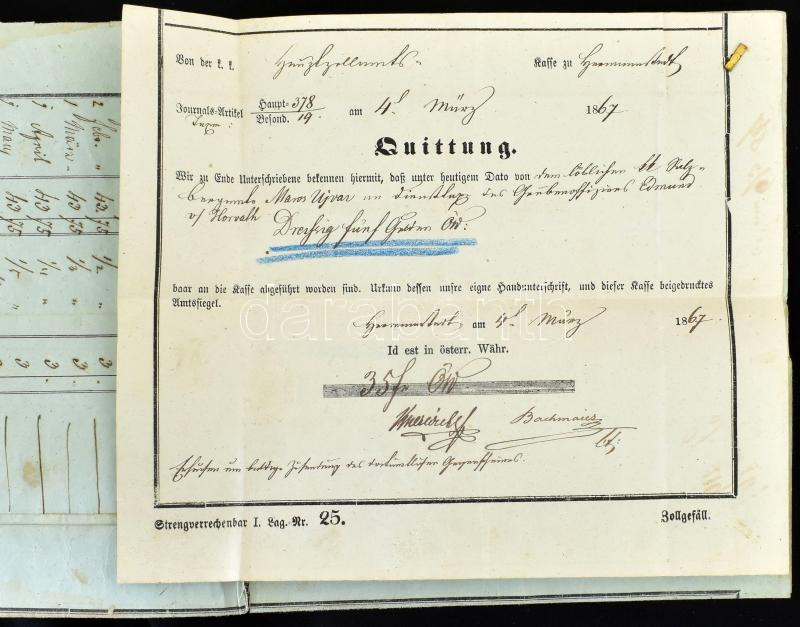 Von der k. k. Hauptzollamts- Kasse zu Hermannstadt
Journals-Artikel Haupt- 378 am 4t März 1867
Taxe: Besond. 19.
Quittung.
Wir zu Ende Unterschriebene bekennen hiermit, daß unter heutigem Dato von dem löblichen kk Salz-
bergamte Maros Ujvar an Diensttaxe des Grubenoffiziers Edmund
v/ Horvath
Dreißig fünf Gulden ÖW:
baar an die Kasse abgeführt worden sind. Urkund dessen unsre eigne Handunterschrift, und dieser Kasse beigedrucktes
Amtssiegel.
Hermannstadt, am 4t März 1867.
Id est in österr. Währ.
35 f ÖW
Bachmaier
Ersuchen um baldige Zusendung des Gegenscheines.
Strengverrechenbar I. Lag.-Nr. 25. Zollgefäll.
Febr. "
März
April
May
42 75
42 75
42 75
42 75
darabanth